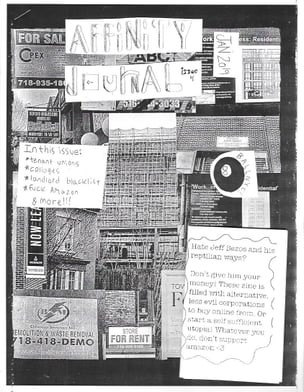 FOR SALE
AFFINITY
JAN 2019
JOURNAL
issue
718-935-18
ABC
In this issue:
*tenant unions
*collages
*landlord blacklist
*fuck Amazon
& more!!!
NOW LEA
Hate Jeff Bezos and his
reptilian ways?
Don't give him your
money! These zine is
filled with alternative,
less evil corporations
to buy online from. Or
start a self sufficient
utopia! Whatever you
do, don't support
amazon <3
DEMOLITION & WASTE REMOVAL
718-418-DEMO
STORE
FOR RENT